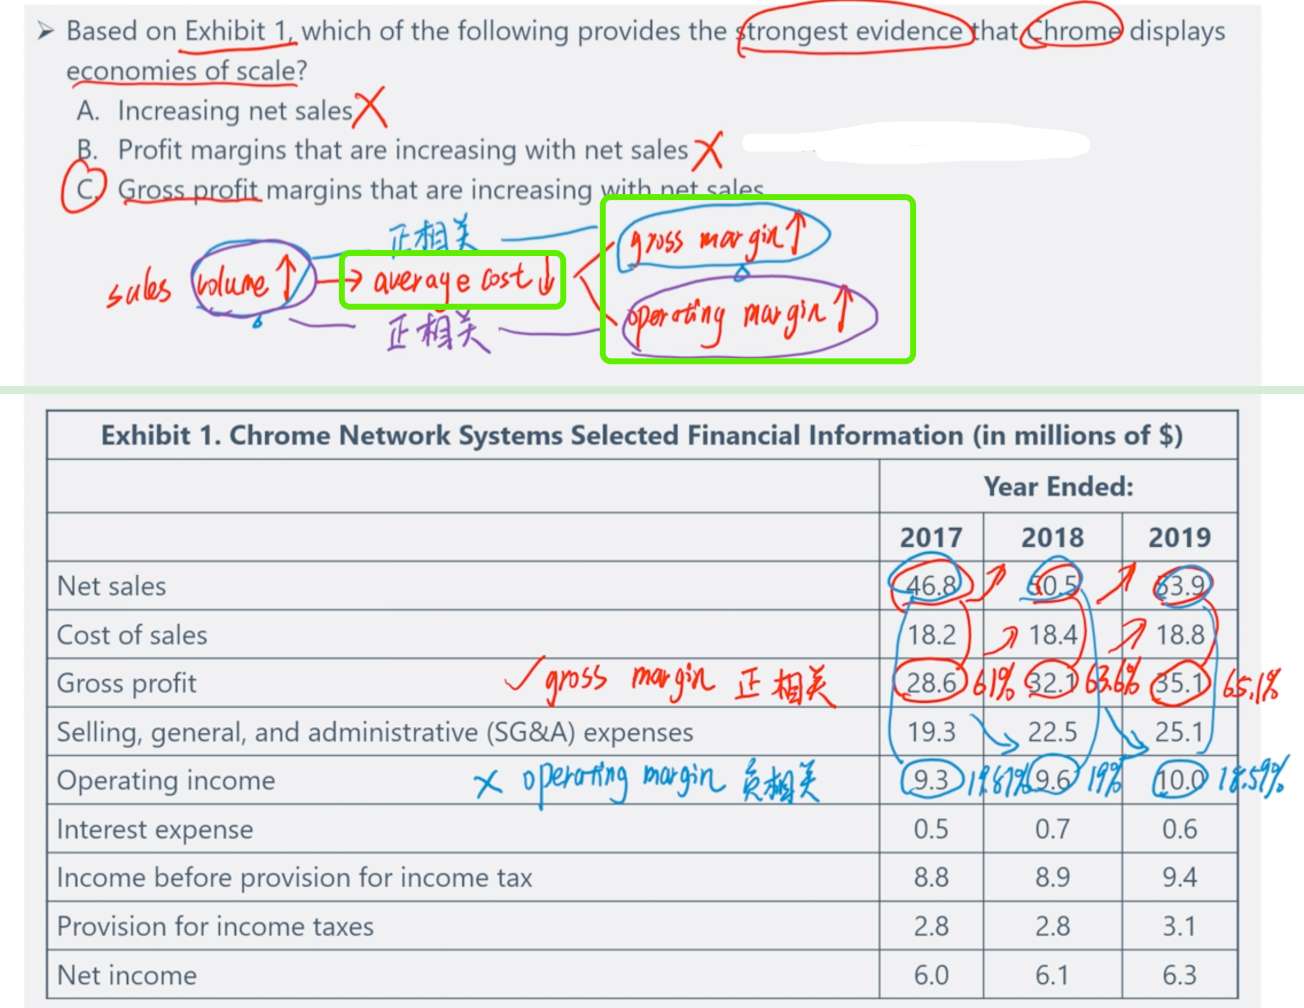 ➤ Based on Exhibit 1, which of the following provides the strongest evidence that Chrome displays
economies of scale?
A. Increasing net sales X
B. Profit margins that are increasing with net sales X
C. Gross profit margins that are increasing with net sales
正相关 gross margin ↑
sales volume ↑ → average cost ↓
正相关 operating margin ↑
Exhibit 1. Chrome Network Systems Selected Financial Information (in millions of $)
Year Ended:
2017 2018 2019
Net sales 46.8 50.5 53.9
Cost of sales 18.2 18.4 18.8
Gross profit ✓ gross margin 正相关 28.6 61% 32.1 63.6% 35.1 65.1%
Selling, general, and administrative (SG&A) expenses 19.3 22.5 25.1
Operating income × operating margin 负相关 9.3 19.87% 9.6 19% 10.0 18.59%
Interest expense 0.5 0.7 0.6
Income before provision for income tax 8.8 8.9 9.4
Provision for income taxes 2.8 2.8 3.1
Net income 6.0 6.1 6.3